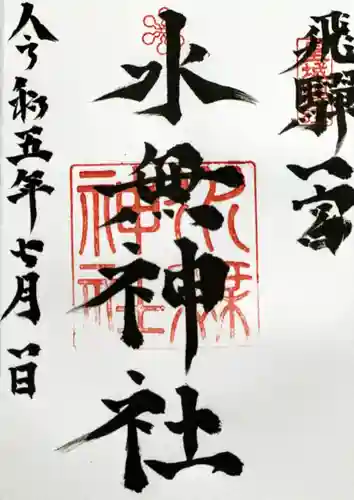 飛騨一宮
水無神社
令和五年七月一日